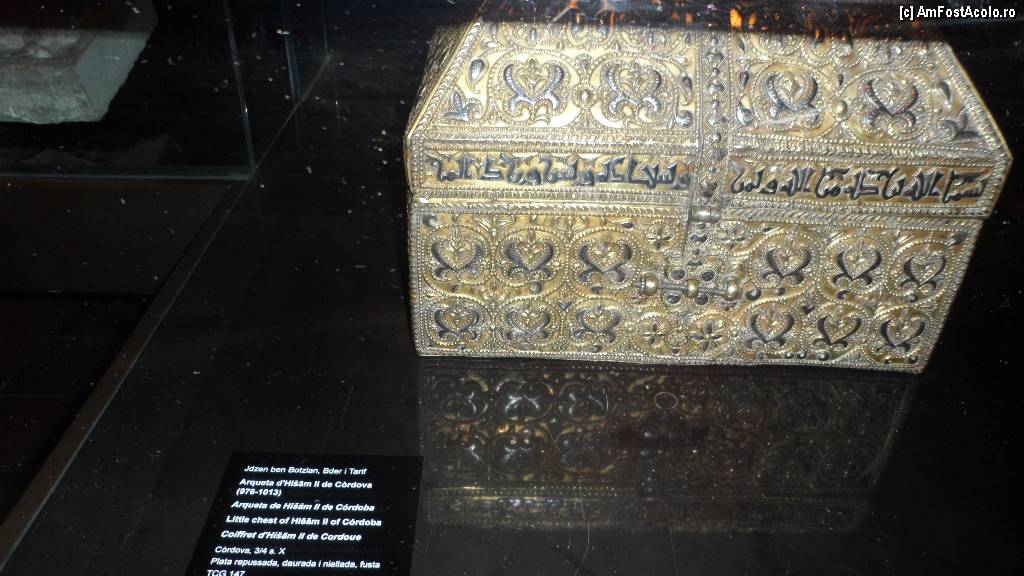 [c] AmFostAcolo.ro
Jdzen ben Botzlan, Bder i Tarif
Arqueta d'Hišãm II de Còrdova
(976-1013)
Arqueta de Hišãm II de Córdoba
Little chest of Hišãm II of Córdoba
Coiffret d'Hišãm II de Cordoue
Còrdova, 3/4 s. X
Plata repussada, daurada i niellada, fusta
TCG 147